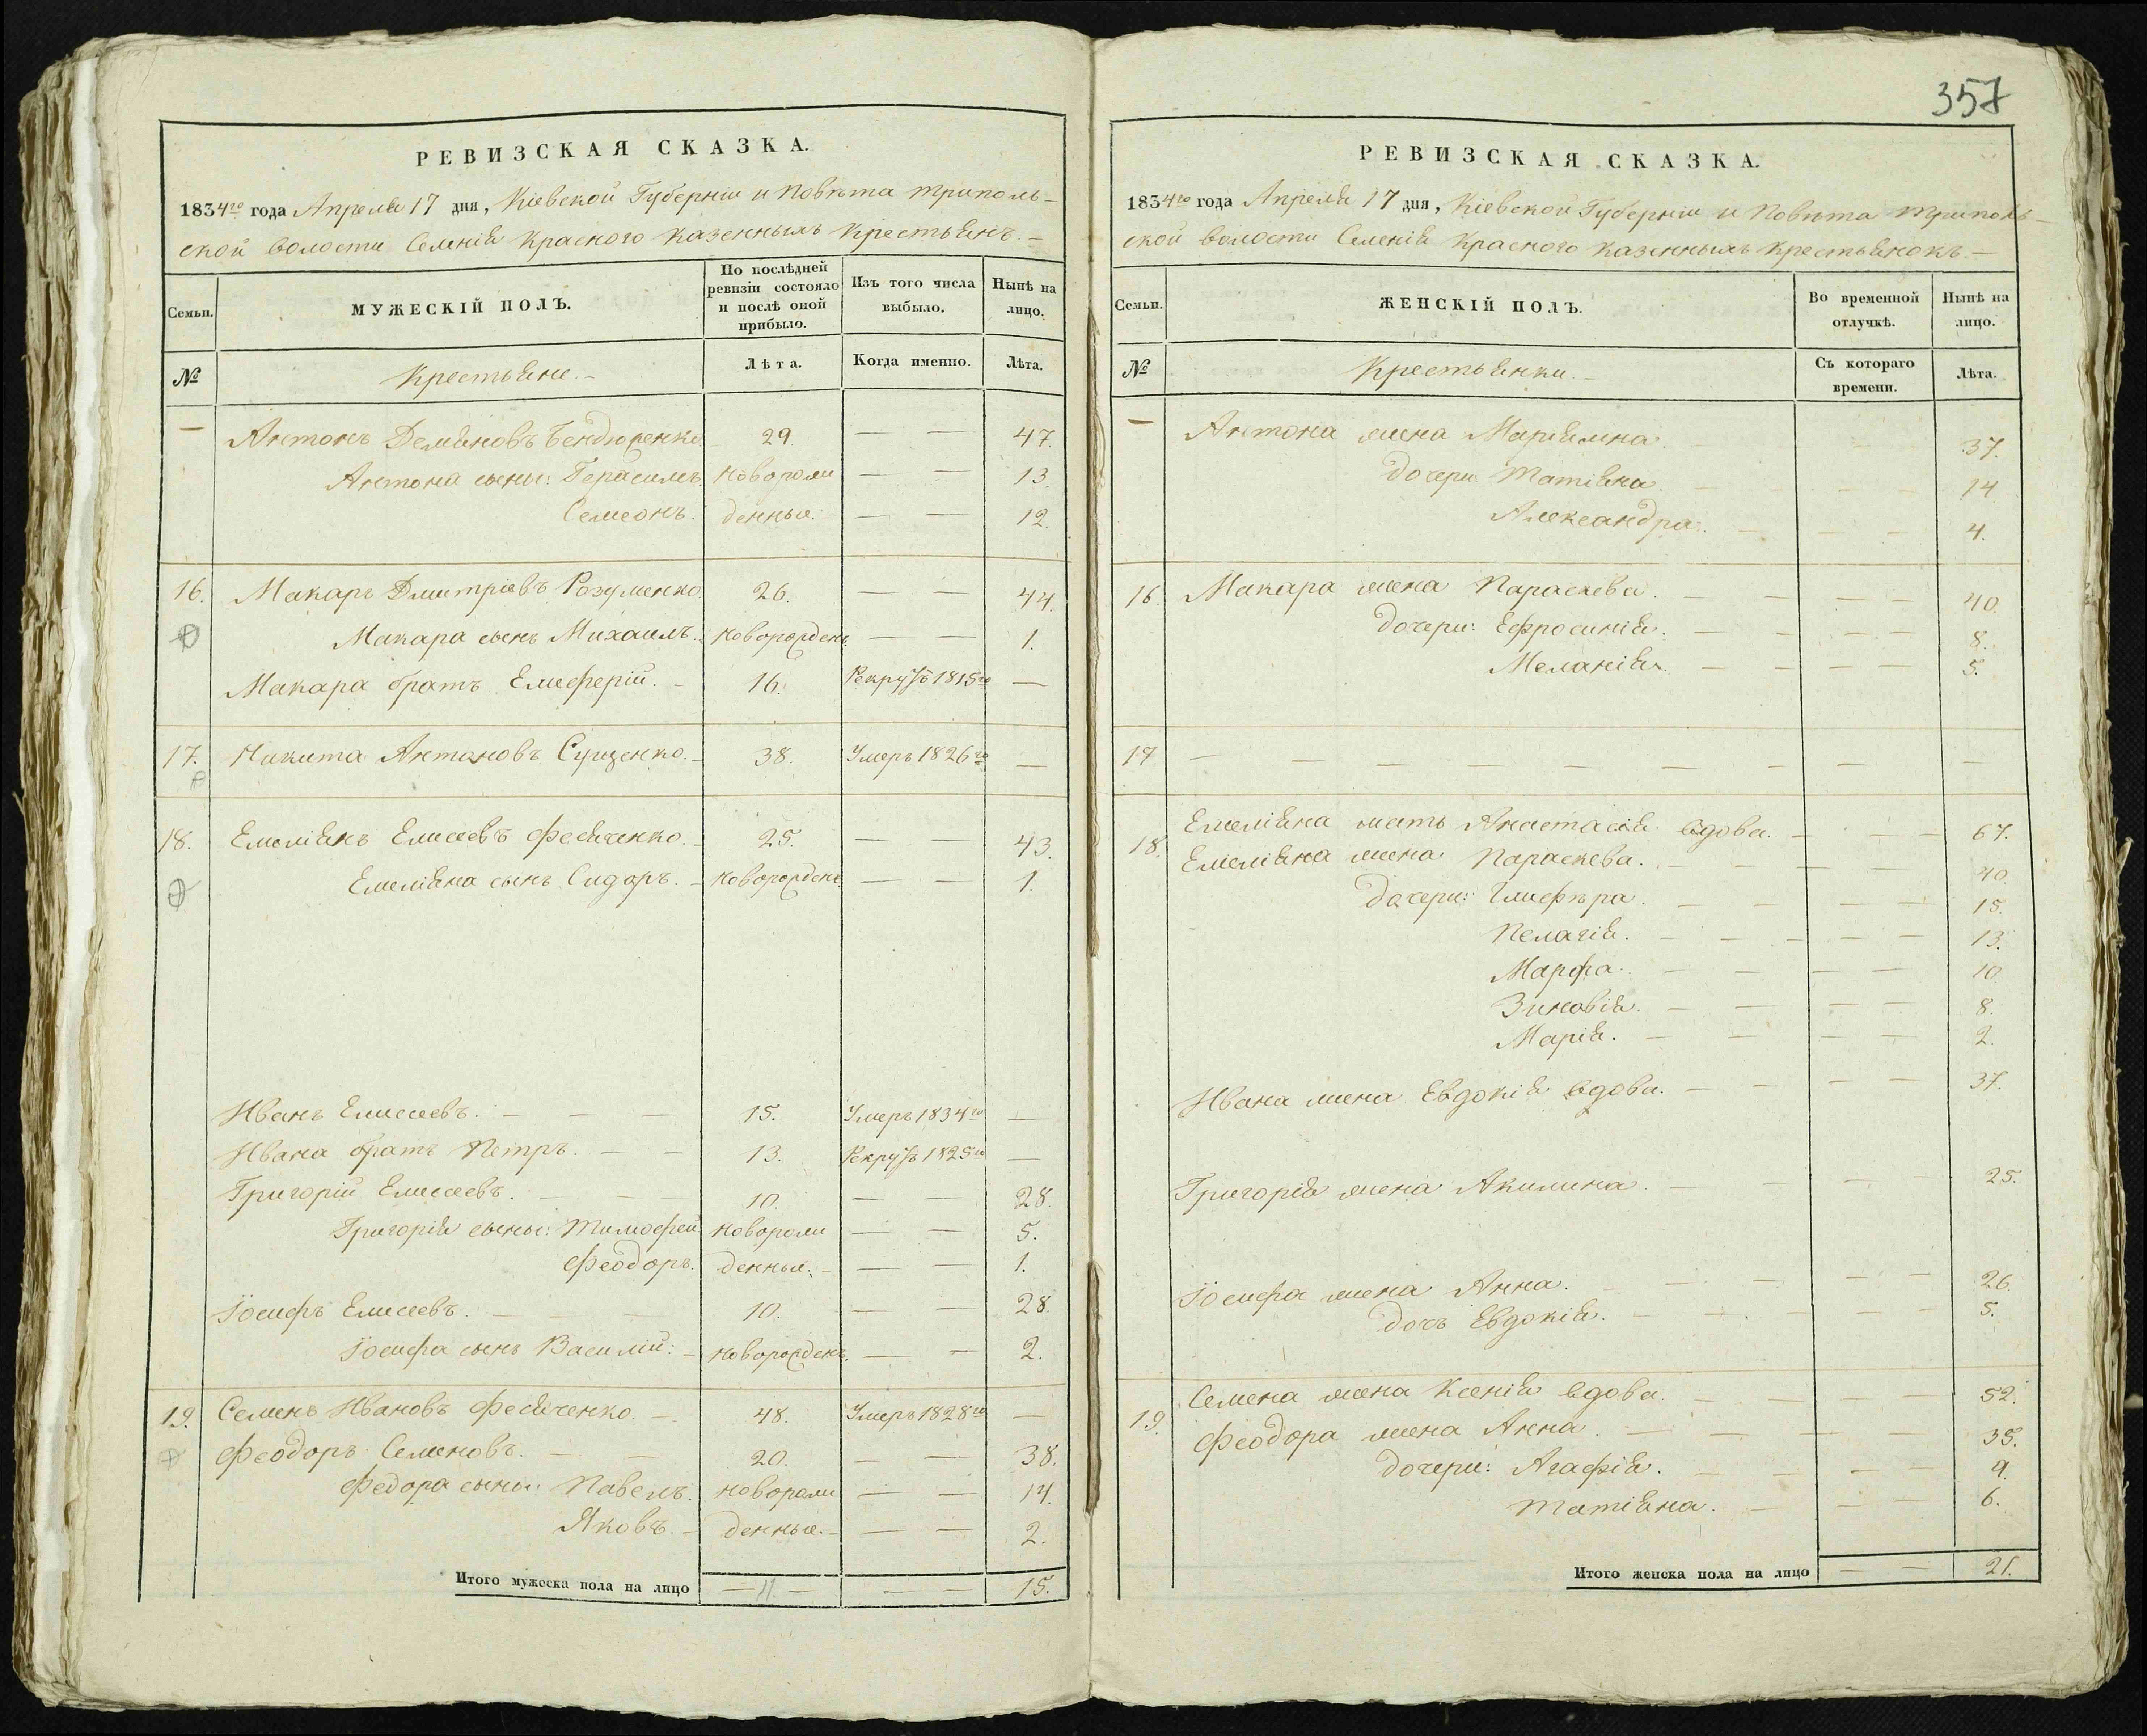 357
РЕВИЗСКАЯ СКАЗКА.
1834го года Апреля 17 дня, Кіевской Губерніи и Повѣта Триполь-
ской волости Селенія Красного казенныхъ крестьянъ.-
Семьи. МУЖЕСКІЙ ПОЛЪ. По послѣдней ревизіи состояло и послѣ оной прибыло. Изъ того числа выбыло. Нынѣ на лицо.
№ Крестьяне.- Лѣта. Когда именно. Лѣта.
— Антонъ Демяновъ Бендюренко 29. — — 47.
Антона сыны: Герасимъ. новорож — — 13.
Семеонъ. денныя. — — 12.
16. Макаръ Дмитріевъ Розуменко. 26. — — 44.
Макара сынъ Михаилъ. новорожденъ. — — 1.
Макара братъ Елиферій. - 16. Рекрутъ 1815го —
17. Никита Антоновъ Сущенко. - 38. Умеръ 1826го —
18. Емеліянъ Елисеевъ Фесяченко. - 25. — — 43.
Емеліяна сынъ Сидоръ. - новорожденъ. — — 1.
Иванъ Елисеевъ. — — — 15. Умеръ 1834го —
Ивана братъ Петръ. — — 13. Рекрутъ 1825го —
Григорій Елисеевъ. — — 10. — — 28.
Григорія сыны: Тимофей новорож — — 5.
Феодоръ. денныя. - — — 1.
Іосифъ Елисеевъ. — — — 10. — — 28.
Іосифа сынъ Василій: - новорожденъ. — — 2.
19. Семенъ Ивановъ Фесяченко. — 48. Умеръ 1828го —
Феодоръ Семеновъ. — — 20. — — 38.
Федора сыны: Павелъ. новорож — — 14.
Яковъ. - денныя. - — — 2.
Итого мужеска пола на лицо — 11. — — — 15.
РЕВИЗСКАЯ СКАЗКА.
1834го года Апреля 17 дня, Кіевской Губерніи и Повѣта Триполь-
ской волости Селенія Красного казенныхъ крестьянокъ.-
Семьи. ЖЕНСКІЙ ПОЛЪ. Во временной отлучкѣ. Нынѣ на лицо.
№ Крестьянки.- Съ котораго времени. Лѣта.
— Антона жена Маріямна. — — 37.
дочери Татіяна. — — — 14
Александра. — — — 4.
16. Макара жена Параскева. — — — — 40.
дочери: Ефросинія. — — — — 8.
Меланія. — — — — 5.
17. — — — — — — — — — —
18. Емеліяна мать Анастасія вдова. — — — 67.
Емеліяна жена Параскева. — — — — 40.
дочери: Глифѣра. — — — — 15.
Пелагія. — — — — — 13.
Марфа. — — — — 10.
Зиновія. — — — — 8.
Марія. — — — — 2.
Ивана жена Евдокія вдова. — — — — 37.
Григорія жена Акилина. — — — — 25.
Іосифа жена Анна. — — — — 26.
дочъ Евдокія. — — — — 5.
19. Семена жена Ксенія вдова. — — — — 52.
Феодора жена Анна. — — — — 35.
дочери: Агафія. — — — — 9.
Татіяна. — — — 6.
Итого женска пола на лицо — — 21.